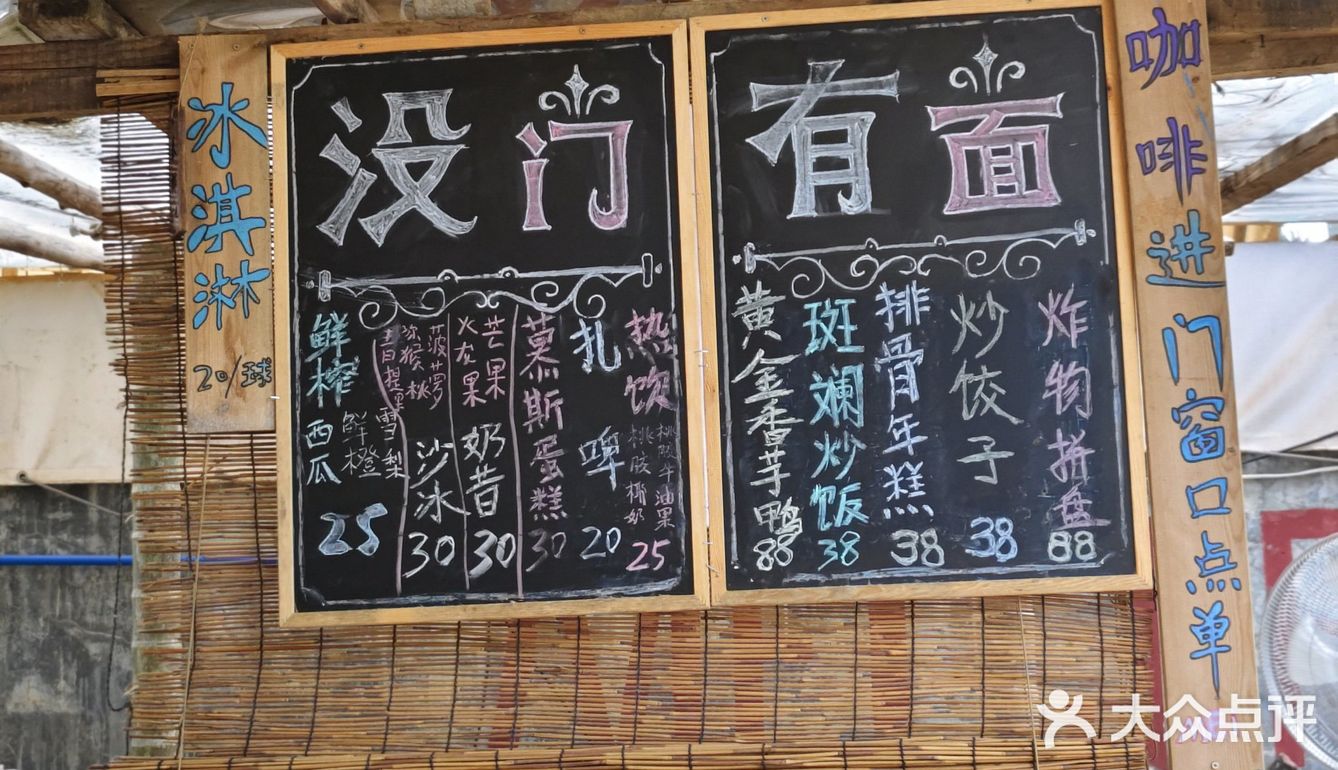 冰淇淋
20/球
没门
鲜榨
西瓜
鲜橙
雪梨
25
青提
猕猴桃
菠萝
沙冰
30
火龙果
芒果
奶昔
30
慕斯蛋糕
30
扎啤
20
热饮
桃胶椰奶
桃胶牛油果
25
有面
黄金香芋鸭
88
斑斓炒饭
38
排骨年糕
38
炒饺子
38
炸物拼盘
88
咖啡进门窗口点单
大众点评